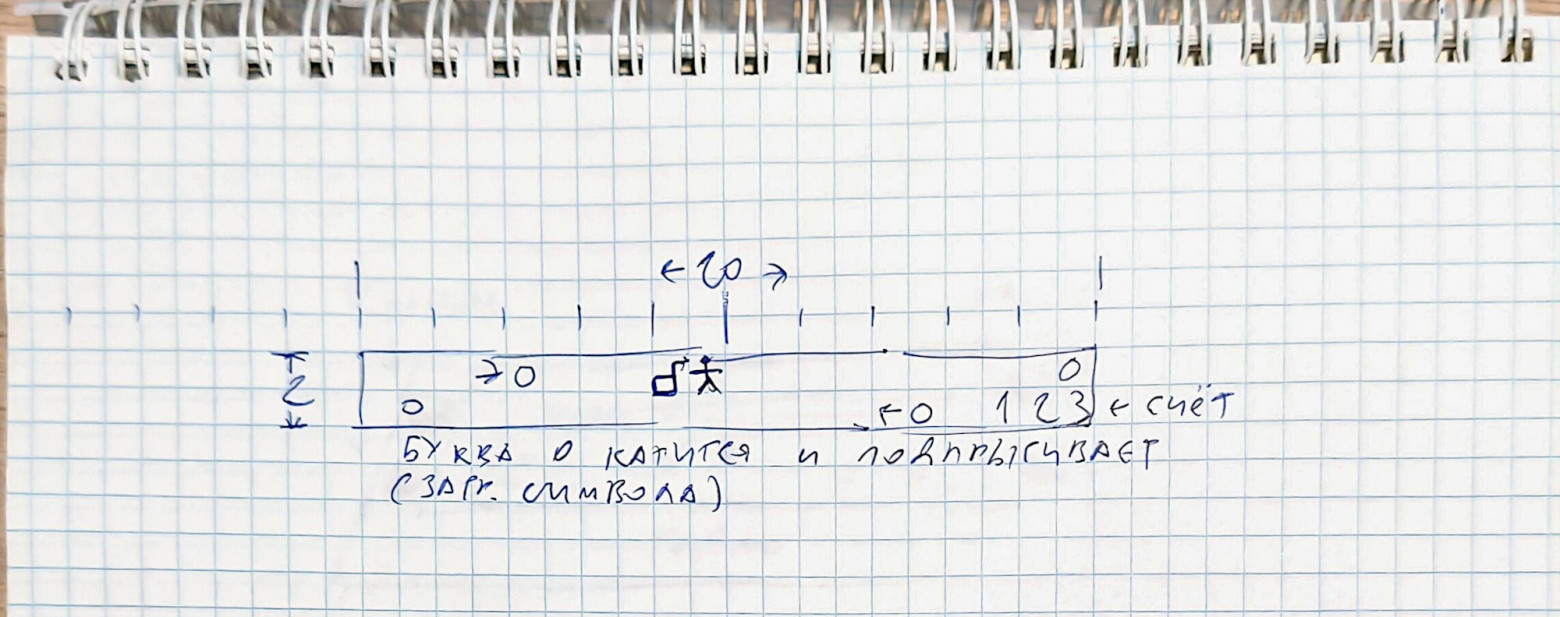 ← 20 →
2
→ 0 0
0 ← 0 1 2 3 ← счёт
БУКВА О КАТИТСЯ И ПОДПРЫГИВАЕТ
(ЗАГР. СИМВОЛА)